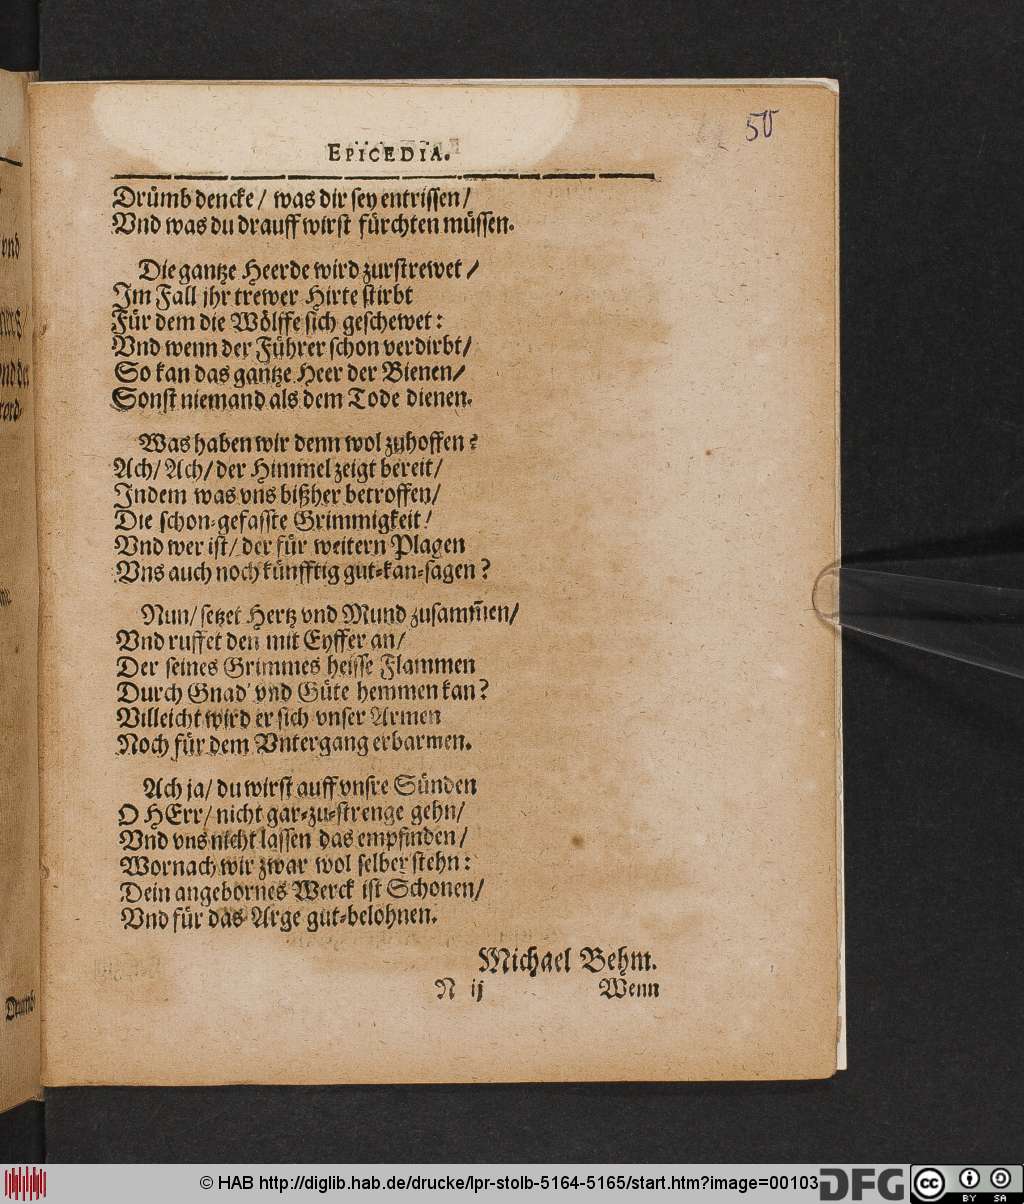 50
EPICEDIA.
Drümb dencke / was dir sey entrissen /
Vnd was du drauff wirst fürchten müssen.
Die gantze Heerde wird zurstrewet /
Im Fall jhr trewer Hirte stirbt
Für dem die Wölffe sich geschewet:
Vnd wenn der Führer schon verdirbt /
So kan das gantze Heer der Bienen /
Sonst niemand als dem Tode dienen.
Was haben wir denn wol zuhoffen?
Ach / Ach / der Himmel zeigt bereit /
Indem was vns bißher betroffen /
Die schon-gefasste Grimmigkeit /
Vnd wer ist / der für weitern Plagen
Vns auch noch künfftig gut-kan-sagen?
Nun / setzet Hertz vnd Mund zusam̃en /
Vnd ruffet den mit Eyffer an /
Der seines Grimmes heisse Flammen
Durch Gnad' vnd Güte hemmen kan?
Villeicht wird er sich vnser Armen
Noch für dem Vntergang erbarmen.
Ach ja / du wirst auff vnsre Sünden
O HErr / nicht gar-zu-strenge gehn /
Vnd vns nicht lassen das empfinden /
Wornach wir zwar wol selber stehn:
Dein angebornes Werck ist Schonen /
Vnd für das Arge gut-belohnen.
Michael Behm.
N ij Wenn
vnd
Drumb
© HAB http://diglib.hab.de/drucke/lpr-stolb-5164-5165/start.htm?image=00103
DFG
cc BY SA